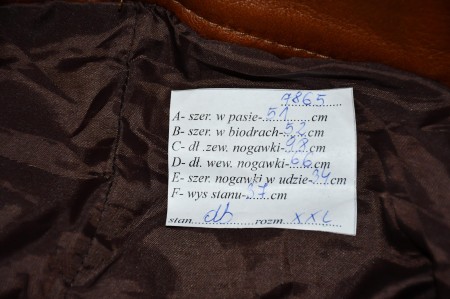 9865
A- szer. w pasie-51cm
B- szer. w biodrach-52cm
C- dl .zew. nogawki-98cm
D- dł. wew. nogawki-66cm
E- szer. nogawki w udzie-34cm
F- wys stanu-37cm
stan db rozm. XXL